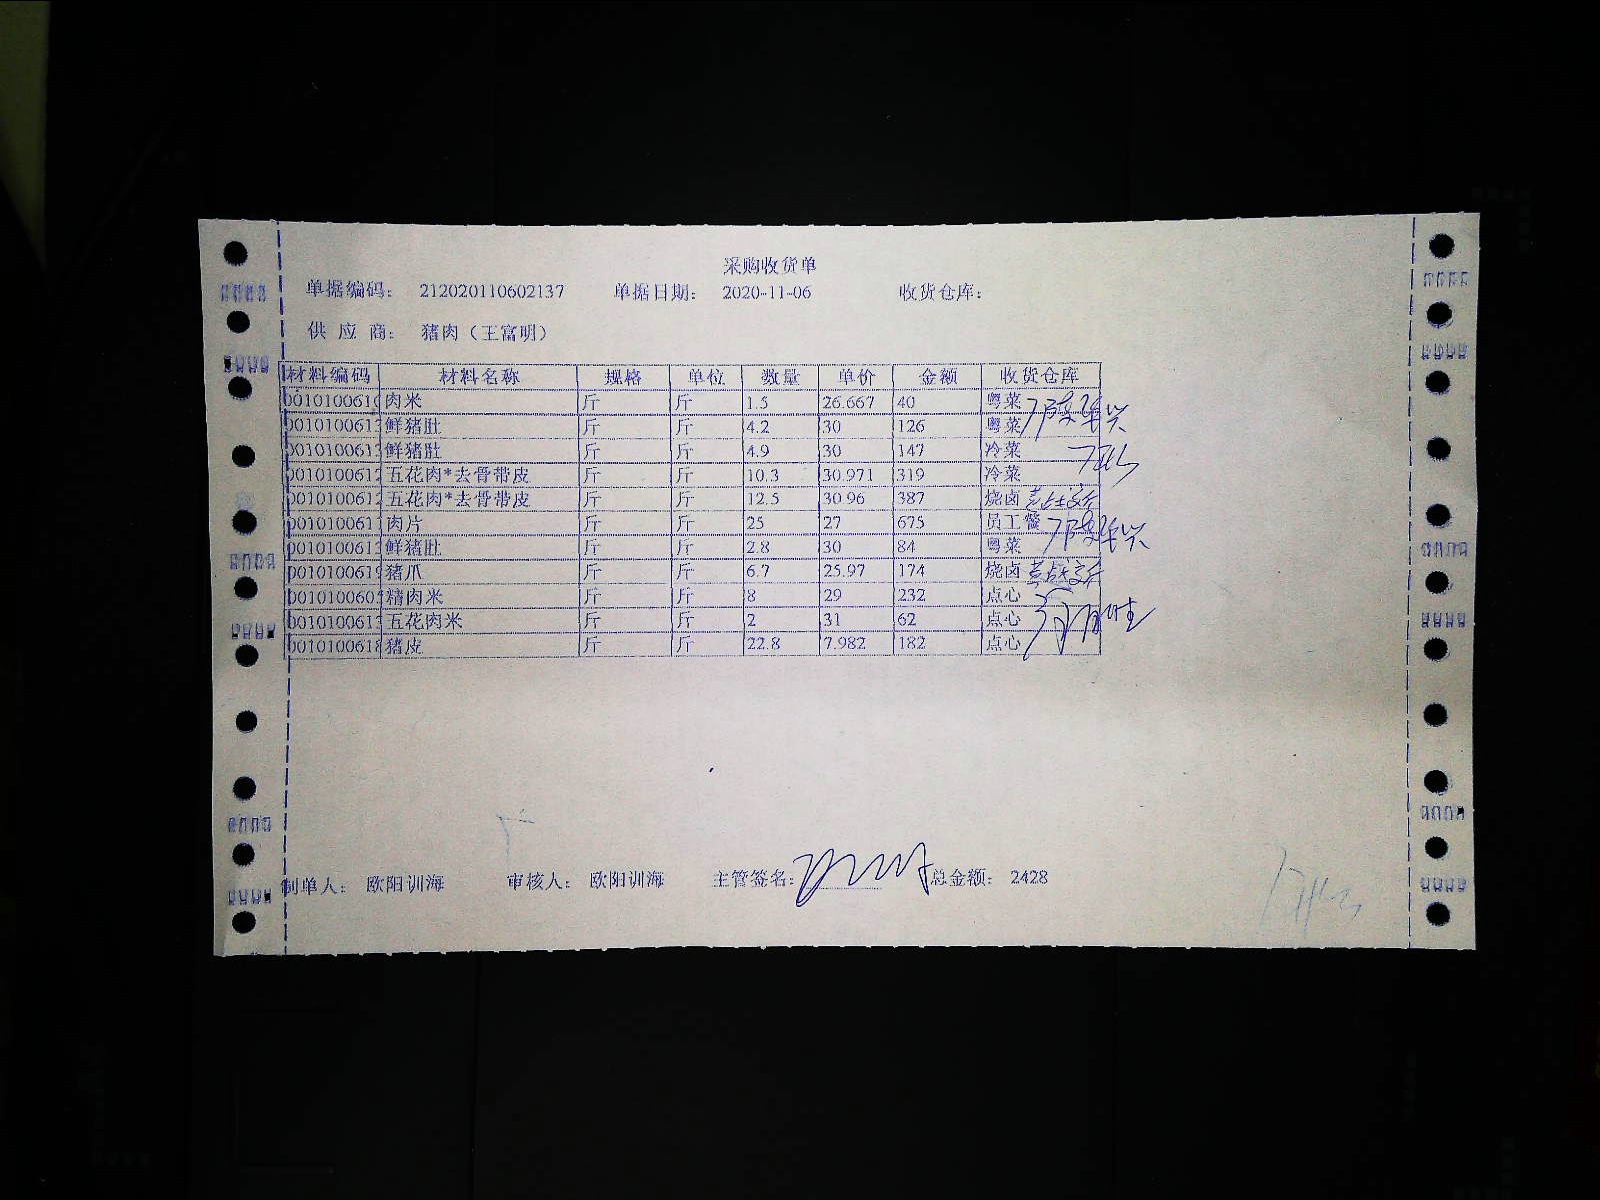 采购收货单
单据编码： 212020110602137 单据日期： 2020-11-06 收货仓库：
供 应 商： 猪肉（王富明）
材料编码 材料名称 规格 单位 数量 单价 金额 收货仓库
001010061 肉米 斤 斤 1.5 26.667 40 粤菜
001010061 鲜猪肚 斤 斤 4.2 30 126 粤菜
001010061 鲜猪肚 斤 斤 4.9 30 147 冷菜
001010061 五花肉*去骨带皮 斤 斤 10.3 30.971 319 冷菜
001010061 五花肉*去骨带皮 斤 斤 12.5 30.96 387 烧卤
001010061 肉片 斤 斤 25 27 675 员工餐
001010061 鲜猪肚 斤 斤 2.8 30 84 粤菜
001010061 猪爪 斤 斤 6.7 25.97 174 烧卤
001010060 精肉米 斤 斤 8 29 232 点心
001010061 五花肉米 斤 斤 2 31 62 点心
001010061 猪皮 斤 斤 22.8 7.982 182 点心
制单人： 欧阳训海 审核人： 欧阳训海 主管签名： 总金额： 2428